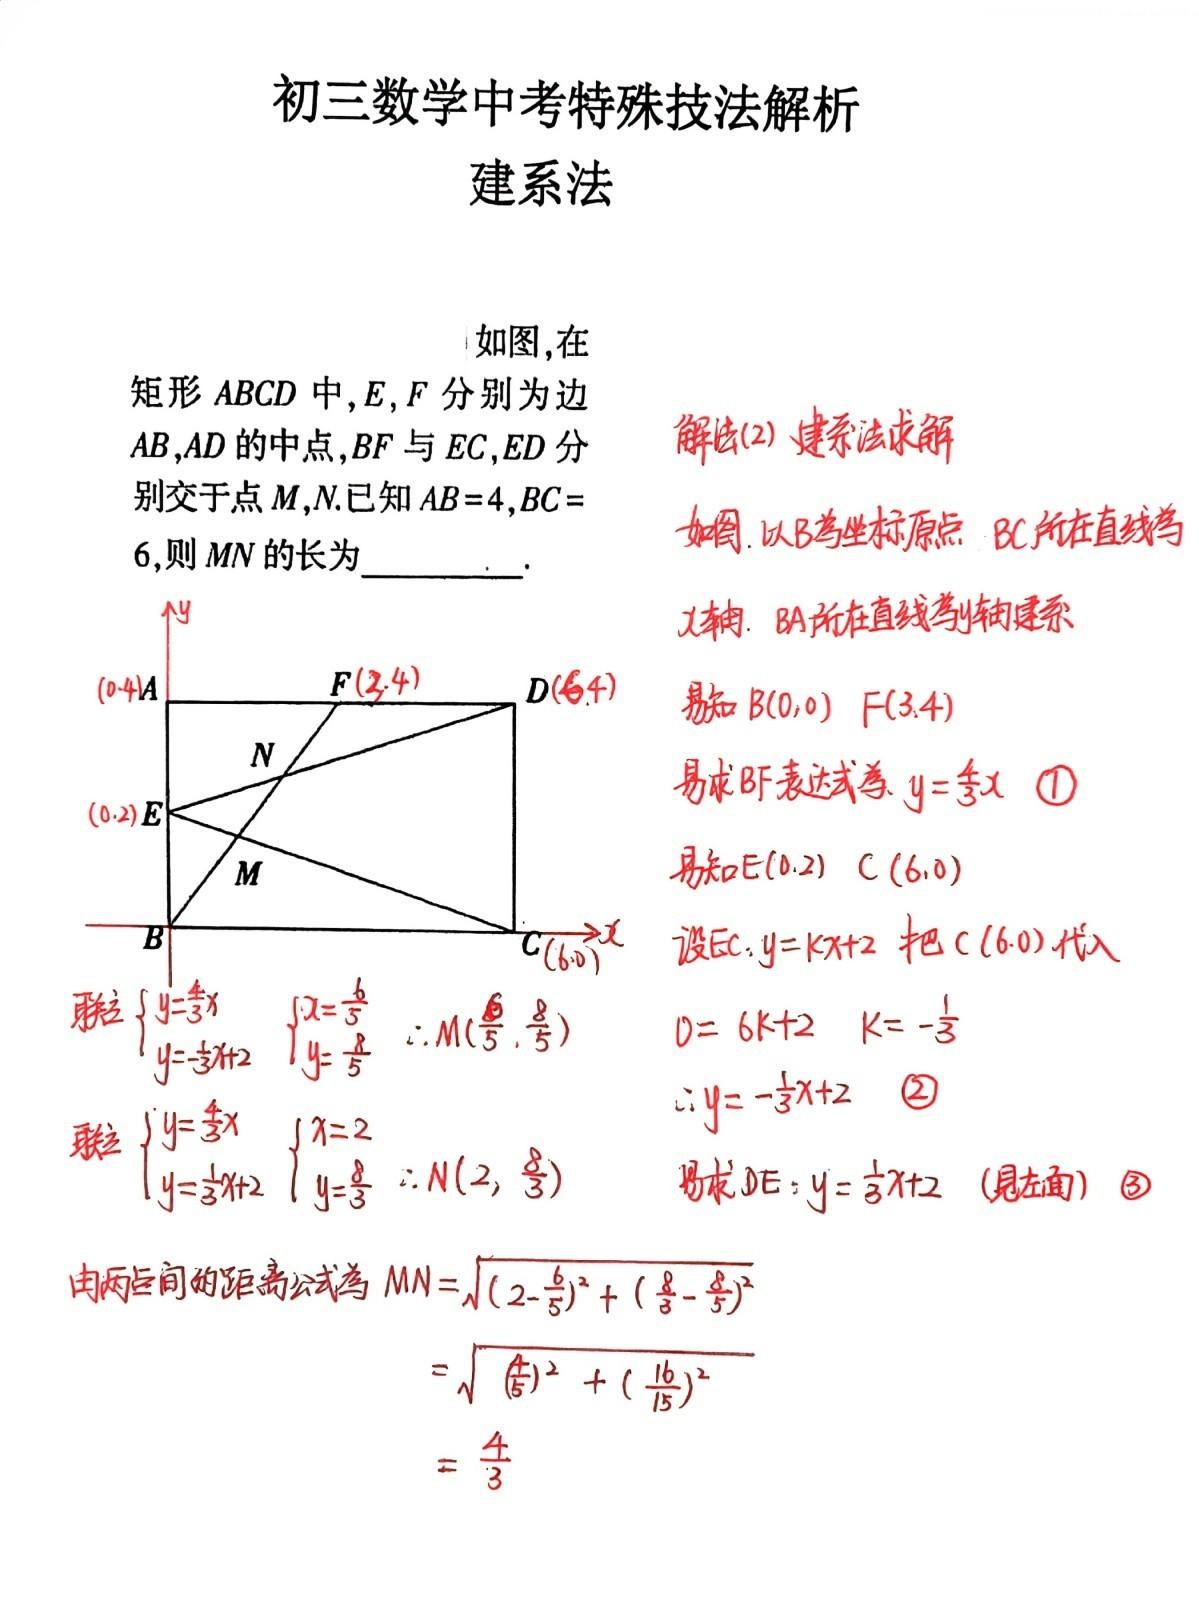 初三数学中考特殊技法解析
建系法
如图,在
矩形 ABCD 中,E,F 分别为边
AB,AD 的中点,BF 与 EC,ED 分
别交于点 M,N.已知 AB=4,BC=
6,则 MN 的长为________.
y
(0.4)A
F(3.4)
D(6.4)
N
(0.2)E
M
B
C
(6.0)
x
联立 {y=4/3x y=-1/3x+2 {x=6/5 y=8/5 ∴M(6/5,8/5)
联立 {y=4/3x y=1/3x+2 {x=2 y=8/3 ∴N(2,8/3)
解法(2) 建系法求解
如图.以B为坐标原点 BC所在直线为
x轴. BA所在直线为y轴建系
易知 B(0,0) F(3.4)
易求BF表达式为 y=4/3x ①
易知E(0.2) C(6,0)
设EC:y=kx+2 把C(6.0)代入
0=6k+2 k=-1/3
∴y=-1/3x+2 ②
易求DE:y=1/3x+2 (见左面) ③
由两点间的距离公式为 MN=√(2-6/5)²+(8/3-8/5)²
=√(4/5)²+(16/15)²
=4/3